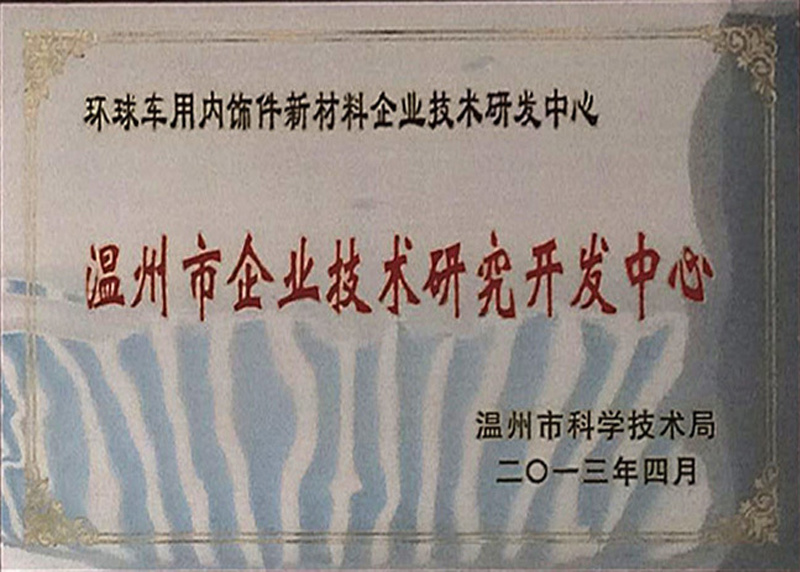 环球车用内饰件新材料企业技术研发中心
温州市企业技术研究开发中心
温州市科学技术局
二〇一三年四月